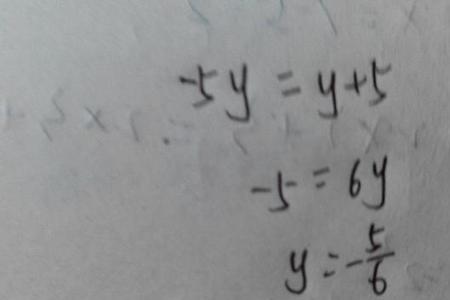 -5y = y+5
-5 = 6y
y = -5/6